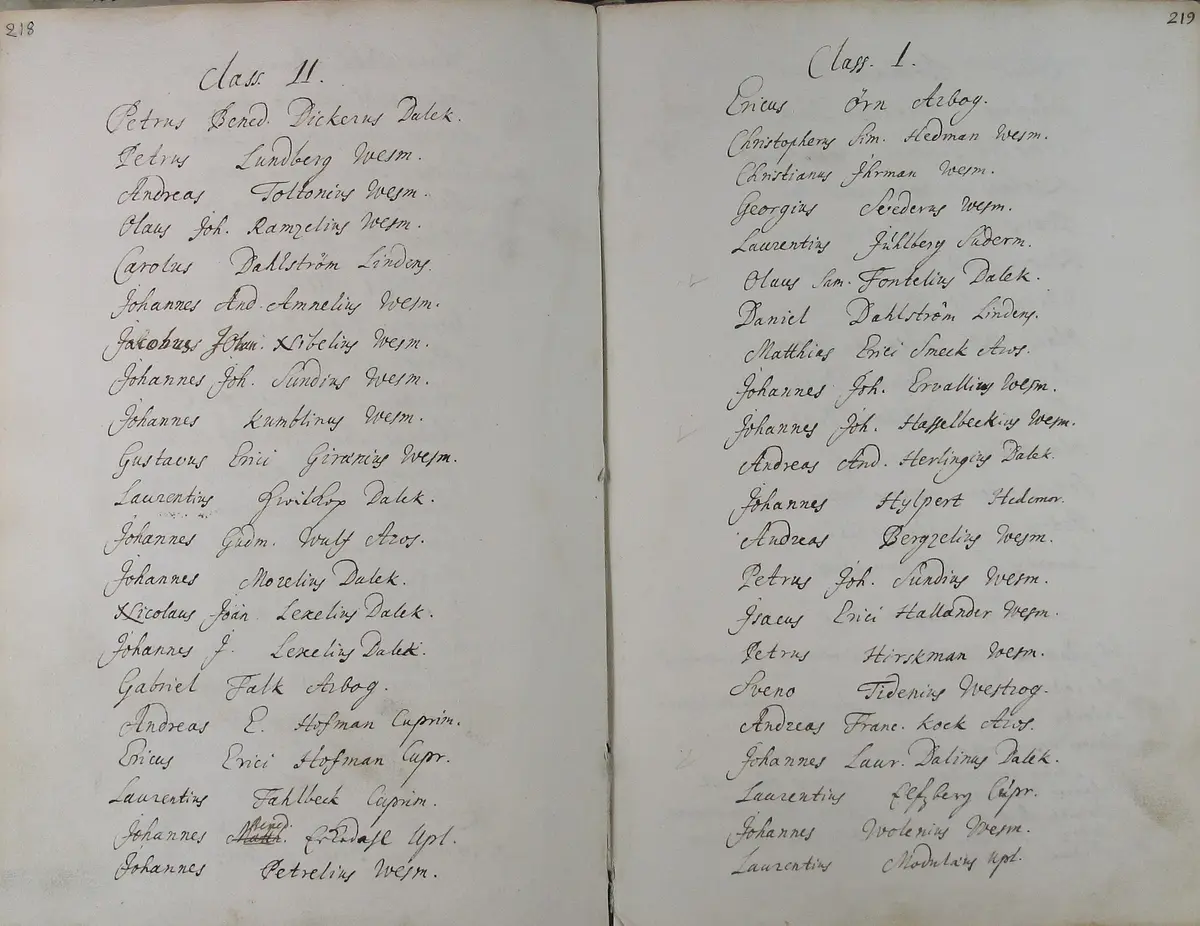 218
Class. II.
Petrus Bened. Dickerus Dalek.
Petrus Lundberg Wesm.
Andreas Toltonius Wesm.
Olaus Joh. Ramzelius Wesm.
Carolus Dahlström Lindens.
Johannes And. Amnelius Wesm.
Jacobus Johan. Nibelius Wesm.
Johannes Joh. Sundius Wesm.
Johannes Kumblinus Wesm.
Gustavus Erici Giranius Wesm.
Laurentius Dalek.
Johannes Gudm. Wulf Aros.
Johannes Morelius Dalek.
Nicolaus Joan. Lexelius Dalek.
Johannes J. Lexelius Dalek.
Gabriel Falk Arbog.
Andreas E. Hofman Cuprim.
Ericus Erici Hofman Cupr.
Laurentius Fahlbeck Cuprim.
Johannes Bened. Upl.
Johannes Petrelius Wesm.
219
Class. I.
Ericus Örn Arbog.
Christopherus Sim. Hedman Wesm.
Christianus Jhrman Wesm.
Georgius Svederus Wesm.
Laurentius Juhlberg Suderm.
Olaus Sam. Fontelius Dalek.
Daniel Dahlström Lindens.
Matthias Erici Smeck Aros.
Johannes Joh. Ervallius Wesm.
Johannes Joh. Hasselbeckius Wesm.
Andreas And. Herlingius Dalek.
Johannes Hylpert Hedemor.
Andreas Bergzelius Wesm.
Petrus Joh. Sundius Wesm.
Isacus Erici Hallander Wesm.
Petrus Hirskman Wesm.
Sveno Tidenius Westrog.
Andreas Franc. Kock Aros.
Johannes Laur. Dalinus Dalek.
Laurentius Elfzberg Cupr.
Johannes Wolenius Wesm.
Laurentius Modulæus Upl.